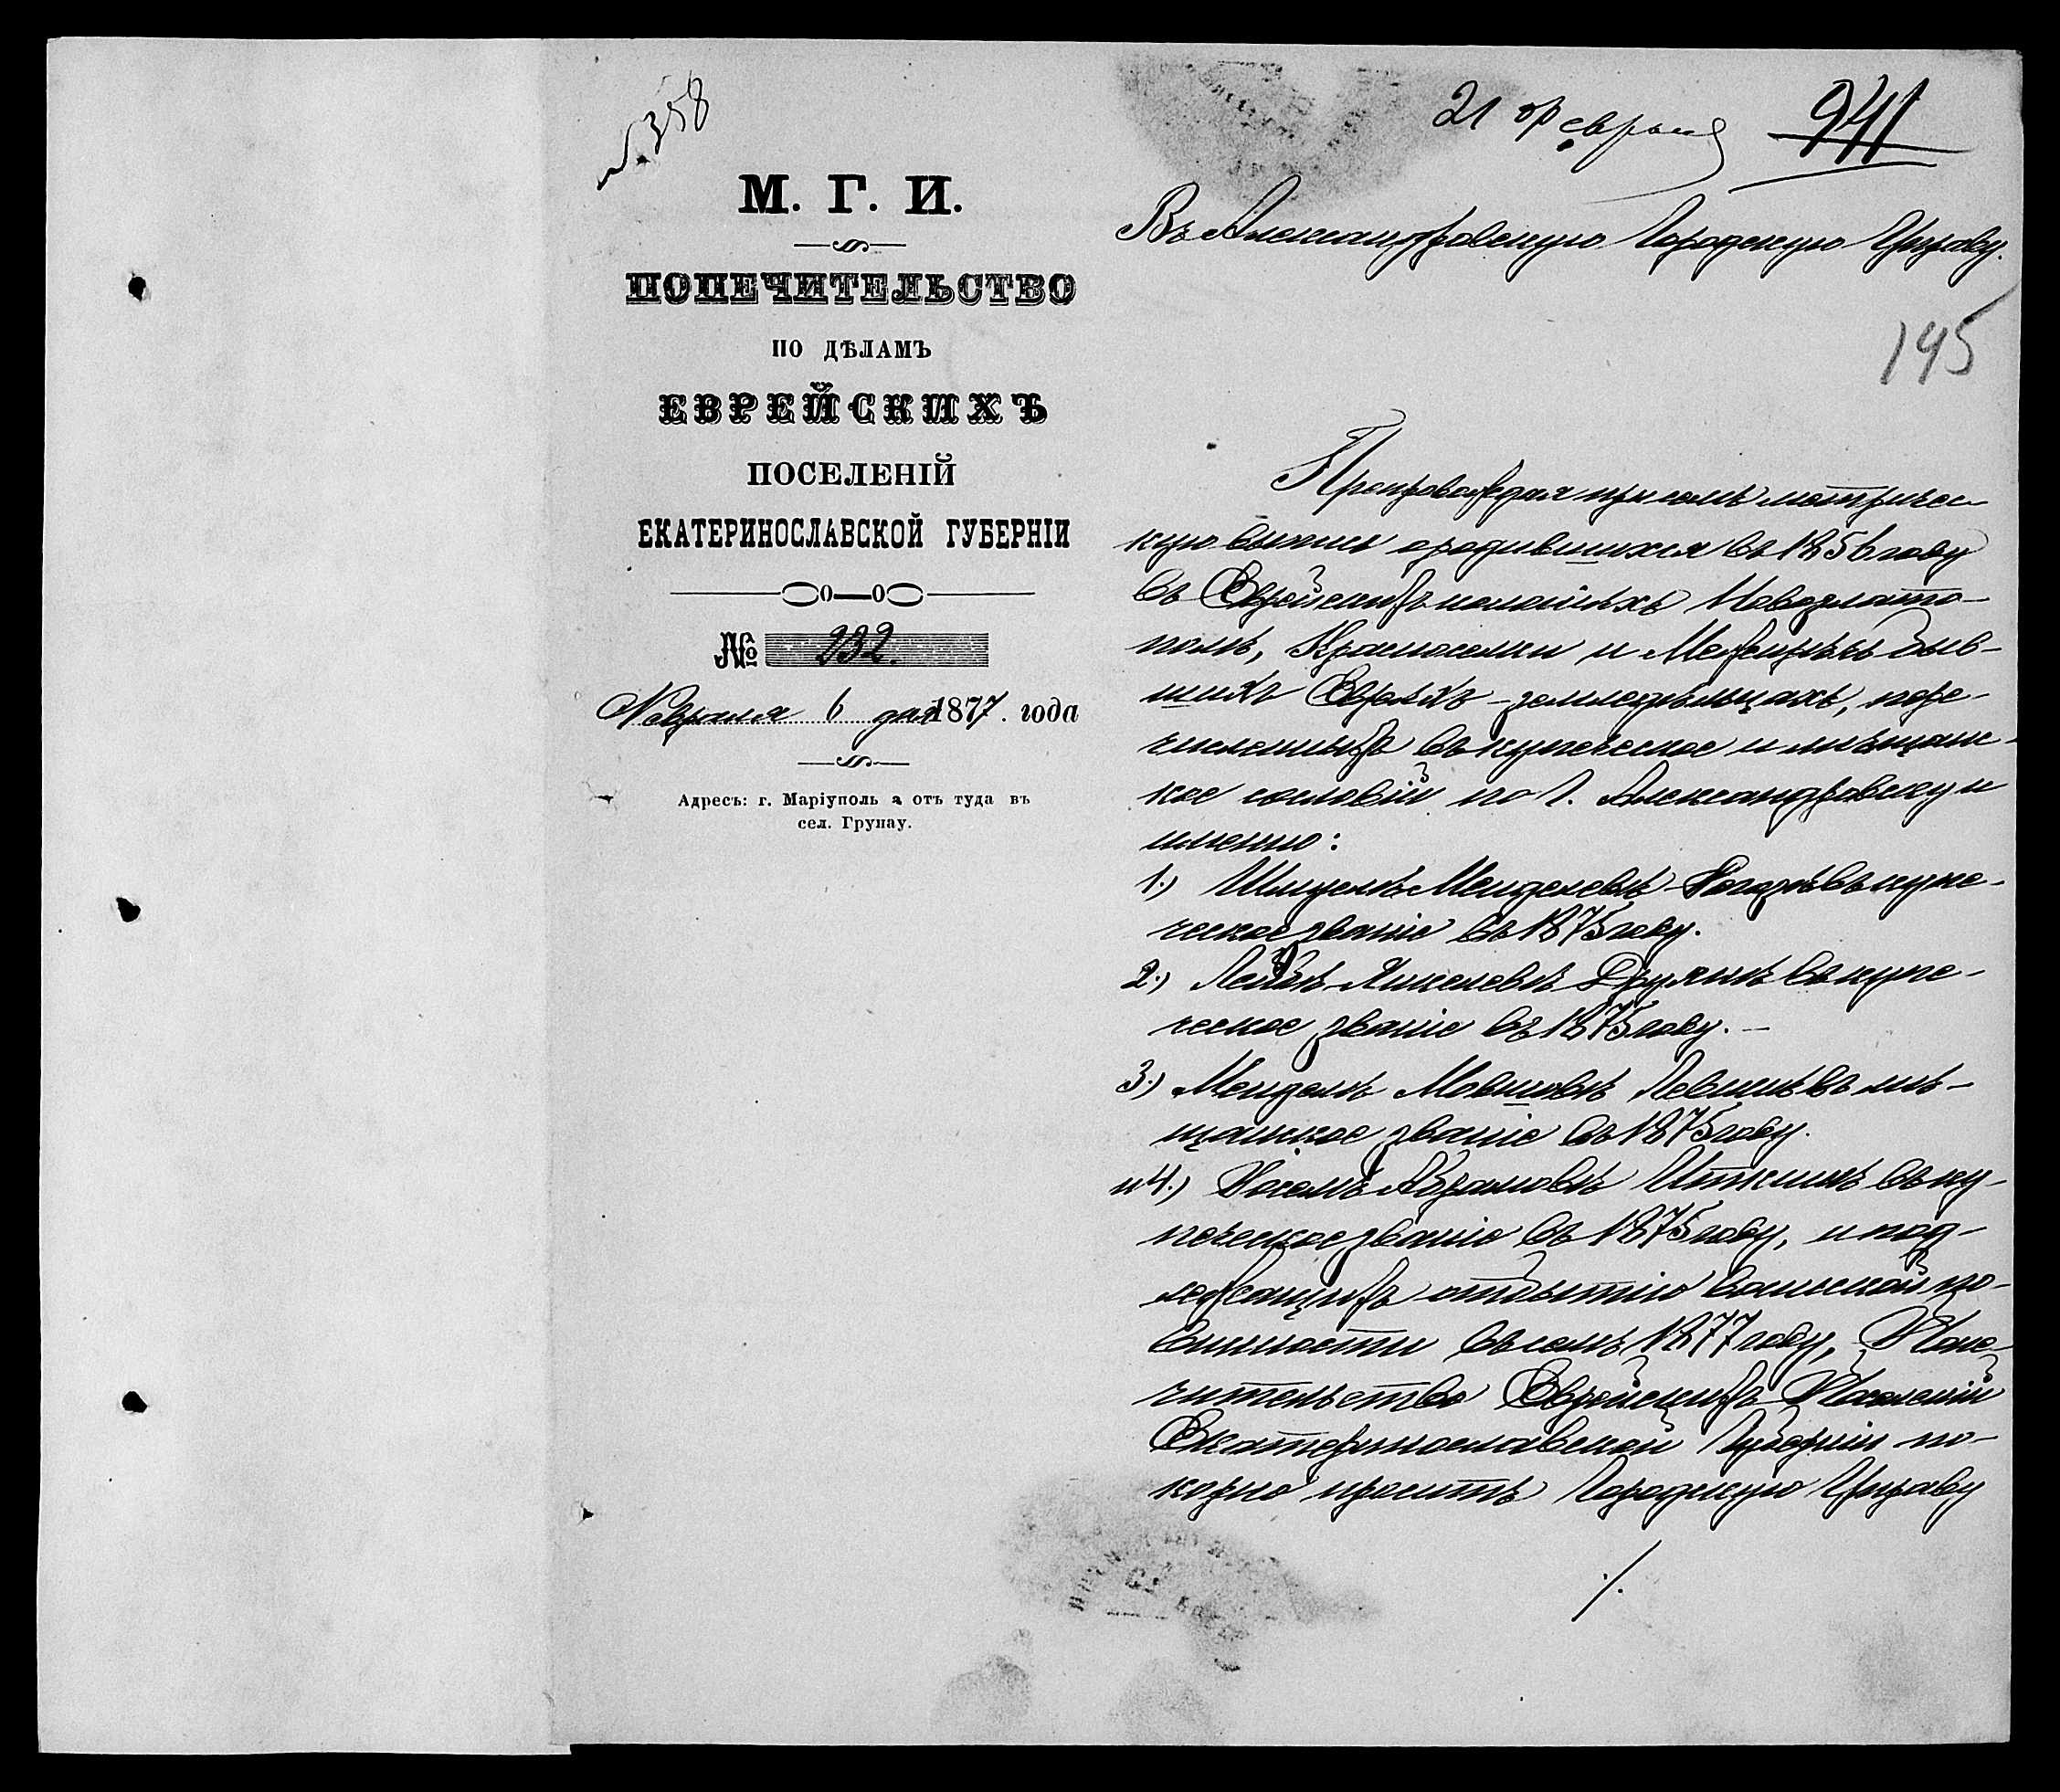 № 358
М. Г. И.
ПОПЕЧИТЕЛЬСТВО
ПО ДѢЛАМЪ
ЕВРЕЙСКИХЪ
ПОСЕЛЕНІЙ
ЕКАТЕРИНОСЛАВСКОЙ ГУБЕРНІИ
№ 232.
Февраля 6 дня 1877. года
Адресъ: г. Маріуполь а отъ туда въ
сел. Грунау.
21 февраля 941
Въ Александровскую Городскую Управу.
145
Препровождая при семъ метричес-
кую выпись о родившихся въ 1856 году
въ Еврейскихъ колоніяхъ Новозлато-
полѣ, Красноселки и Межиричъ быв-
шихъ Евреяхъ-земледѣльцахъ, пере-
численныхъ въ купеческое и мѣщанс-
кое сословій по г. Александровску и
именно:
1.) Шмуель Менделевъ въ купе-
ческое званіе въ 1875 году.
2.) Лейба въ купе-
ческое званіе въ 1875 году. —
3.) Мендель Мовшовъ Левинъ въ мѣ-
щанское званіе въ 1875 году.
и 4.) Абрамовъ Иткинъ въ ку-
печеское званіе въ 1875 году, и под-
лежащихъ отбытію воинской по-
винности въ семъ 1877 году, Попе-
чительство Еврейскихъ Поселеній
Екатеринославской Губерніи по-
корно проситъ Городскую Управу
./.